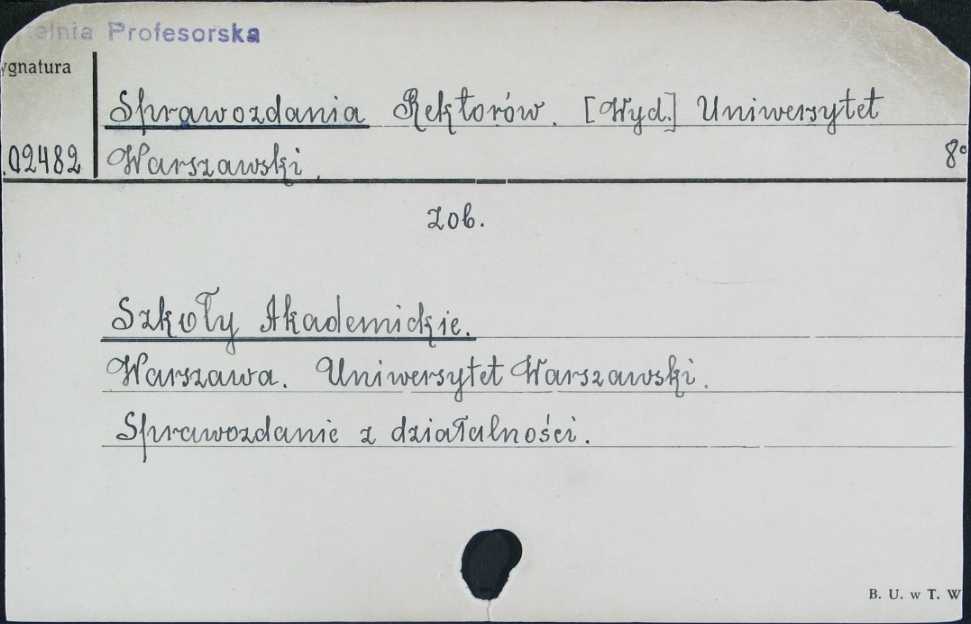 telnia Profesorska
ygnatura
Sprawozdania Rektorów. [Wyd.] Uniwersytet
.02482 Warszawski. 8°
zob.
Szkoły Akademickie.
Warszawa. Uniwersytet Warszawski.
Sprawozdanie z działalności.
B. U. w T. W